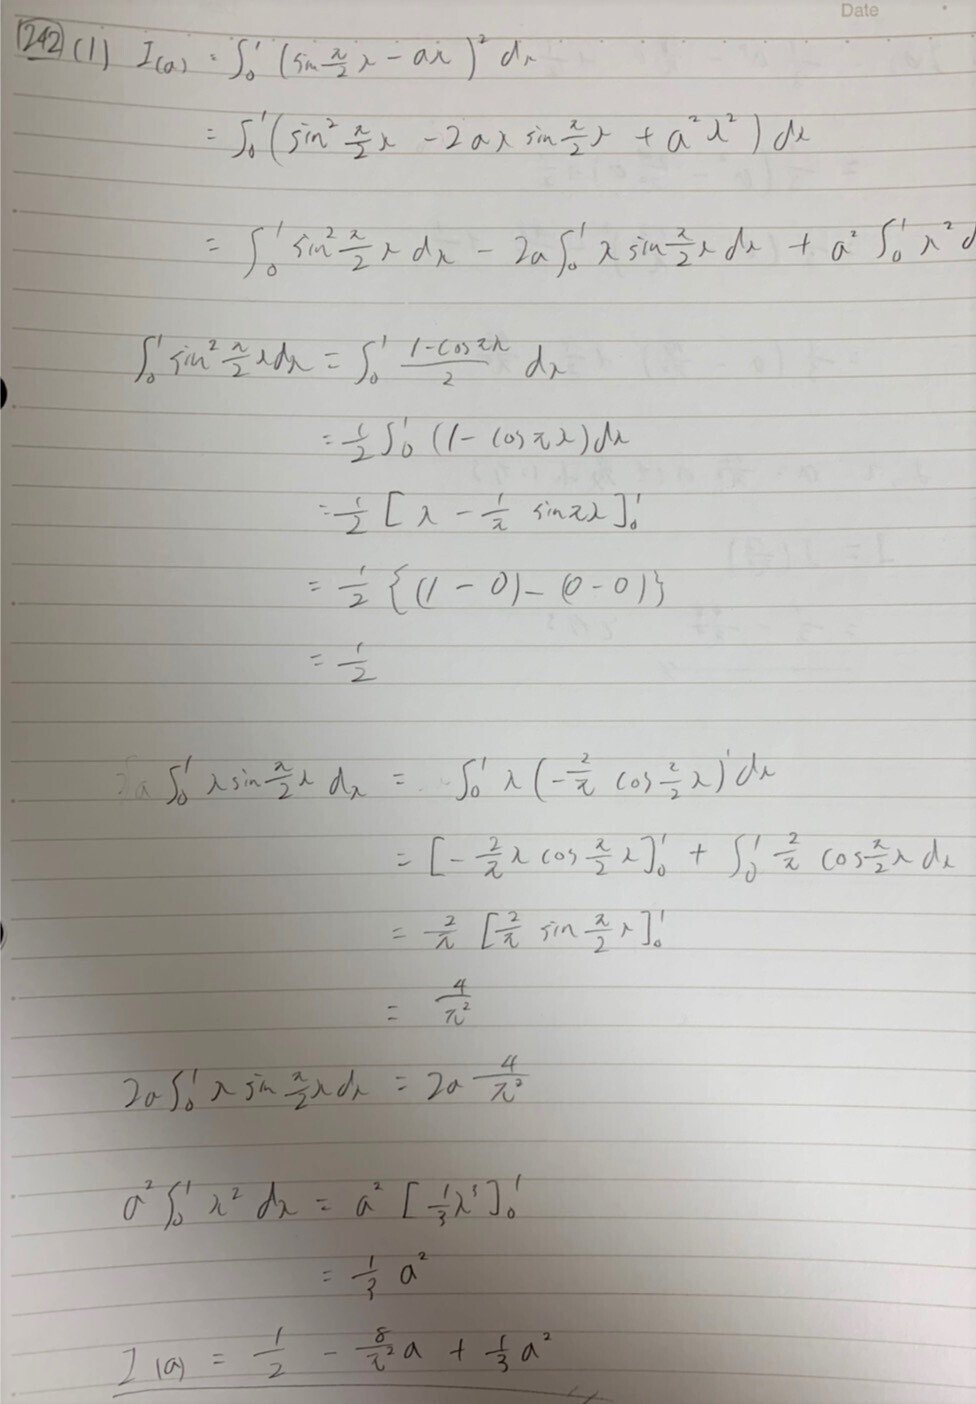 Date
(242) (1) I(a) = ∫₀¹ (sin π/2 x - ax)² dx
= ∫₀¹ (sin² π/2 x - 2ax sin π/2 x + a²x²) dx
= ∫₀¹ sin² π/2 x dx - 2a ∫₀¹ x sin π/2 x dx + a² ∫₀¹ x² d
∫₀¹ sin² π/2 x dx = ∫₀¹ (1-cosπx)/2 dx
= 1/2 ∫₀¹ (1 - cosπx) dx
= 1/2 [x - 1/π sinπx]₀¹
= 1/2 {(1 - 0) - (0 - 0)}
= 1/2
∫₀¹ x sin π/2 x dx = ∫₀¹ x (-2/π cos π/2 x)' dx
= [-2/π x cos π/2 x]₀¹ + ∫₀¹ 2/π cos π/2 x dx
= 2/π [2/π sin π/2 x]₀¹
= 4/π²
2a ∫₀¹ x sin π/2 x dx = 2a 4/π²
a² ∫₀¹ x² dx = a² [1/3 x³]₀¹
= 1/3 a²
I(a) = 1/2 - 8/π² a + 1/3 a²